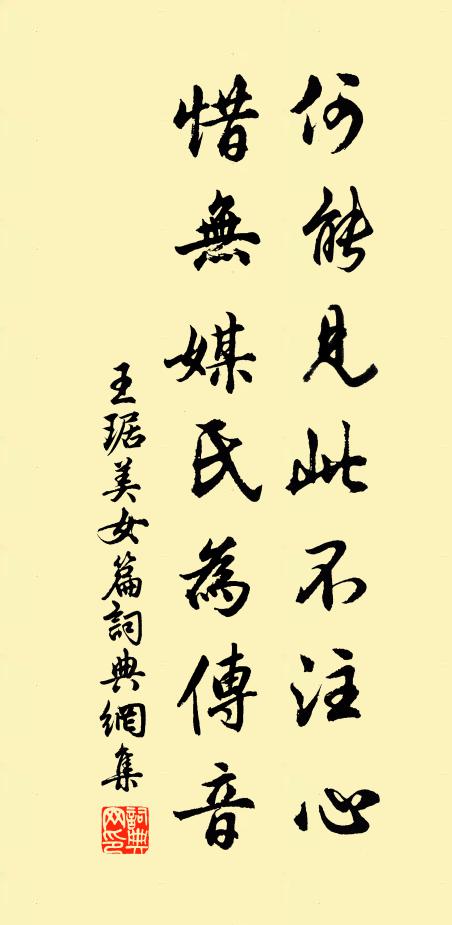 何能見此不注心
惜無媒氏為傳音
王琚美女篇詞典網集
詞典網印